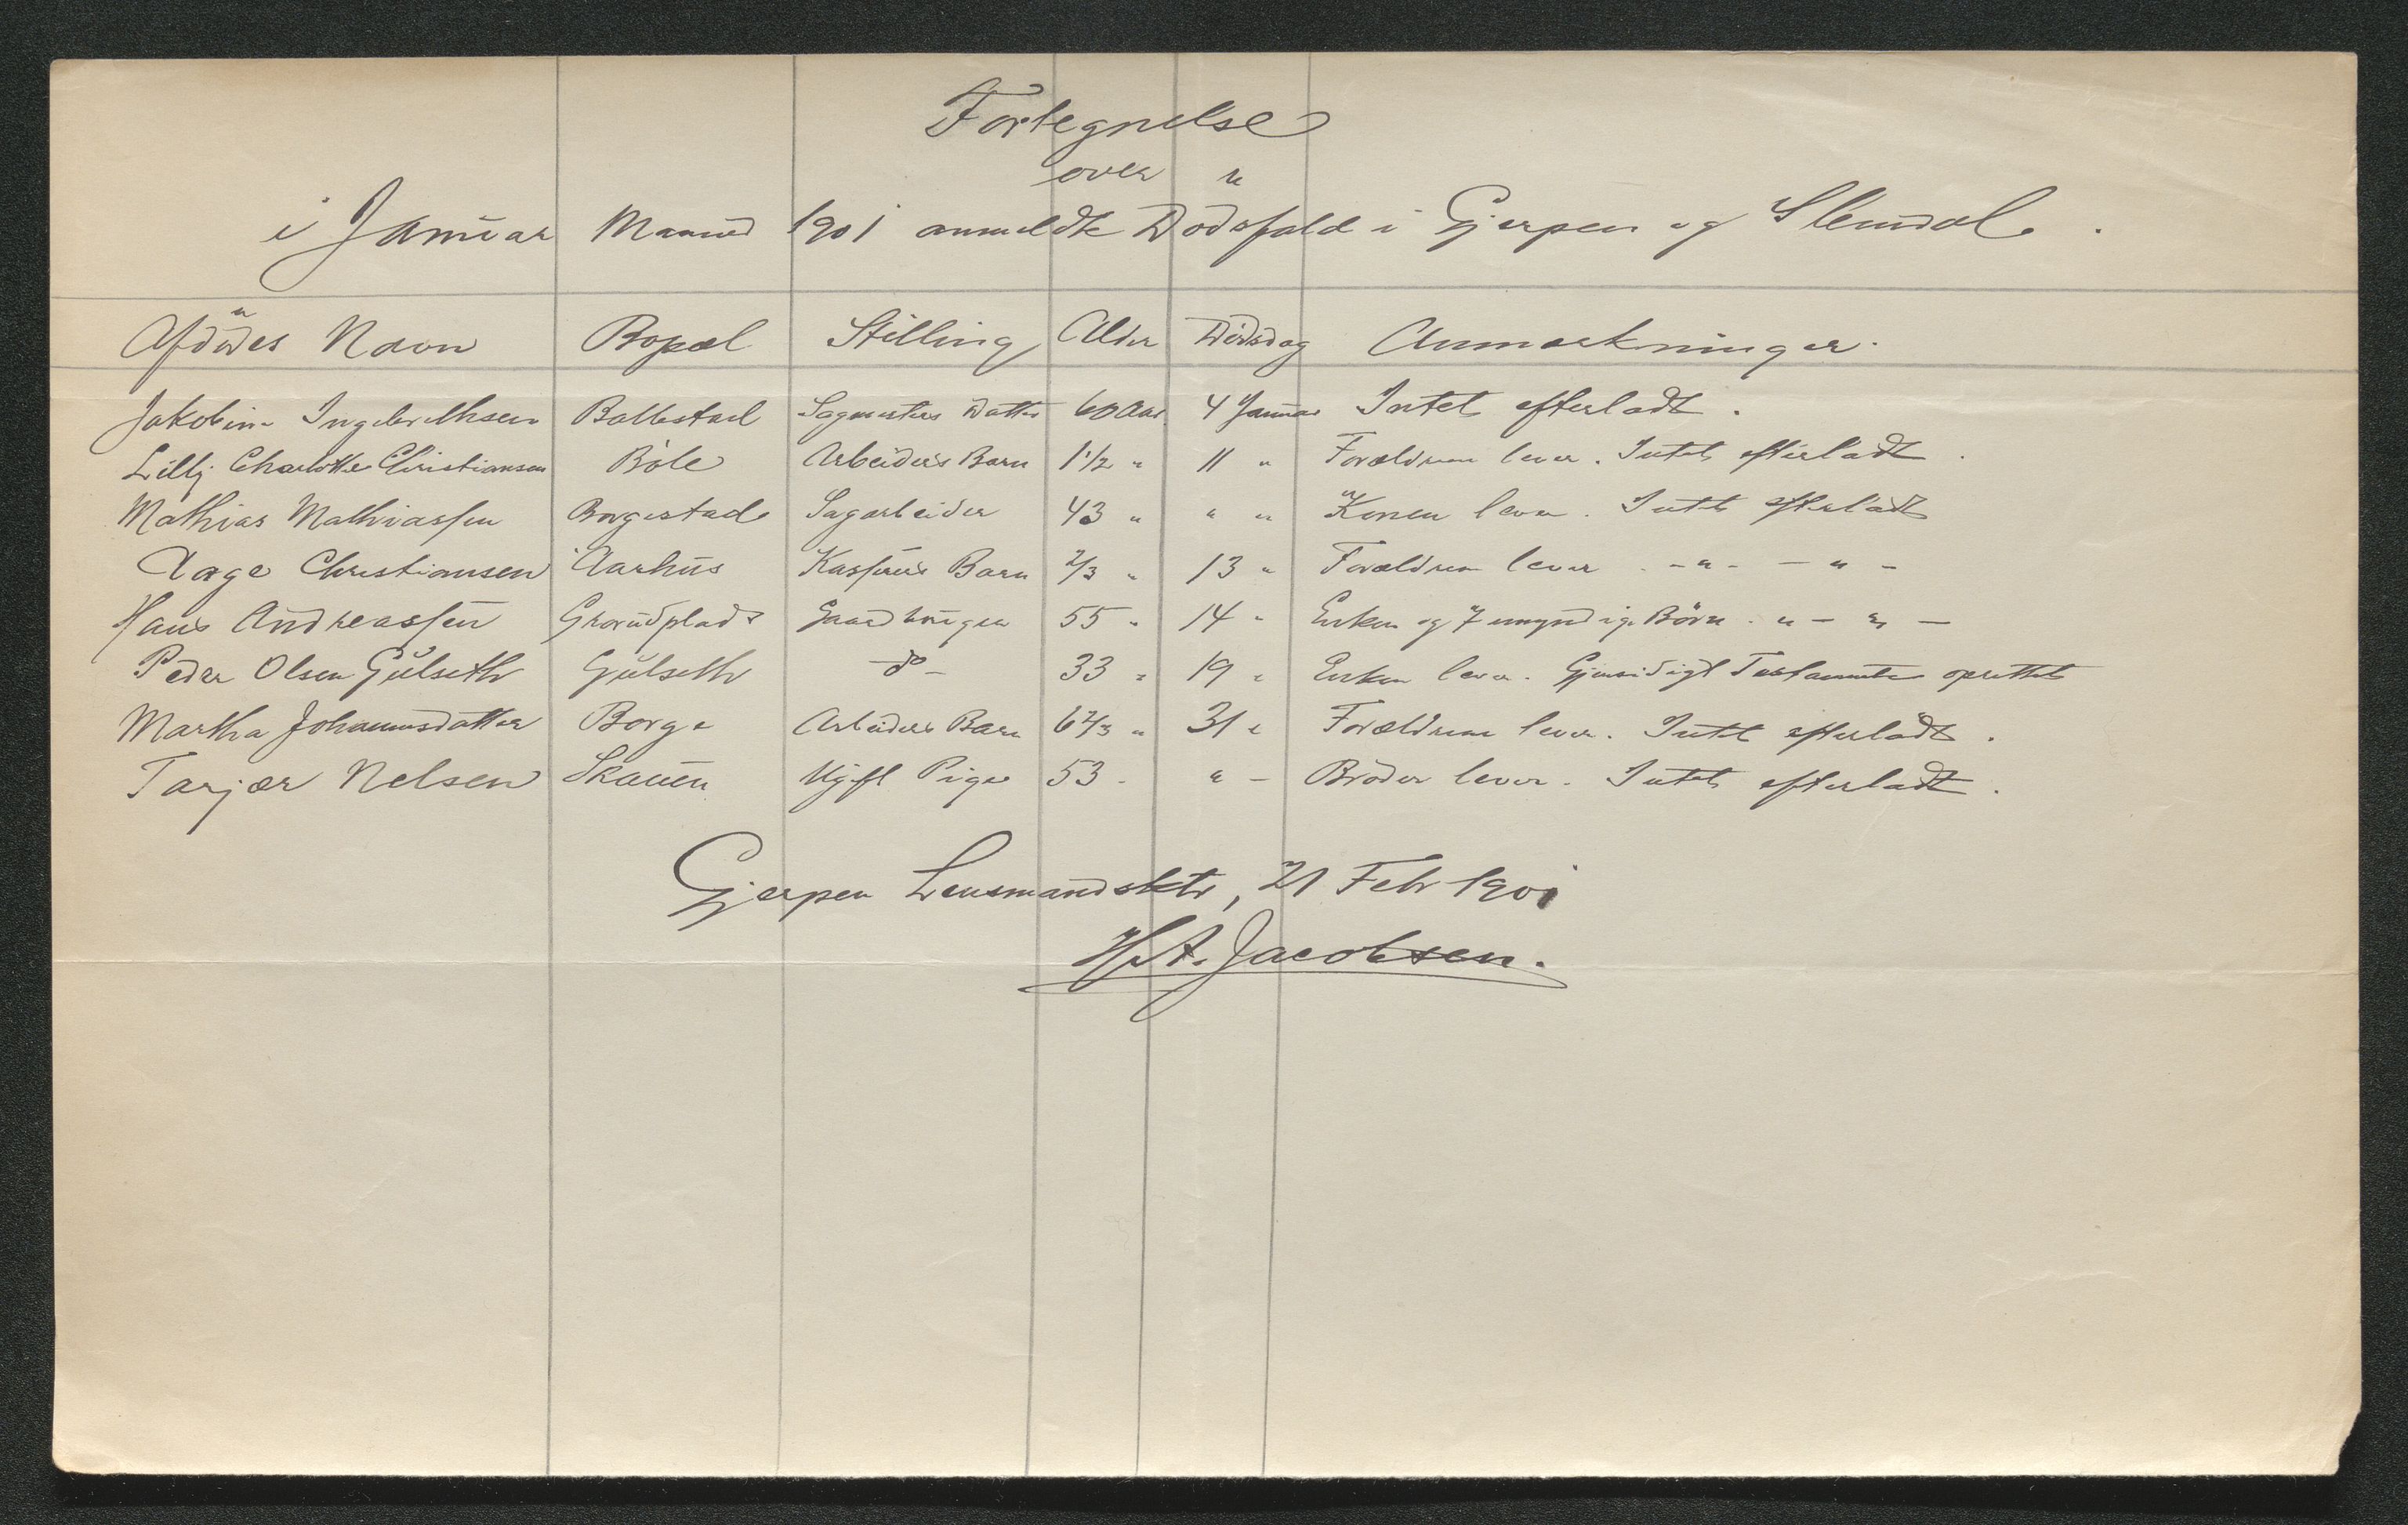 Fortegnelse
over
i Januar Maaned 1901 anmeldte Dødsfald i Gjerpen og Slemdal.
Afdødes Navn Bopæl Stilling Alder Dødsdag Anmærkninger.
Jakobine Ingebrethsen Ballestad Sagmesters Datter 60 Aar 4 Januar Intet efterladt.
Lilly Charlotte Christiansen Bøle Arbeiders Barn 1 1/2 " 11 " Forældrene lever. Intet efterladt.
Mathias Mathiassen Borgestad Sagarbeider 43 " " " Konen lever. Intet efterladt
Aage Christiansen Aarhus Barn 2/3 " 13 " Forældrene lever - " - - " -
Hans Andreassen Grorudplads Gaardbruger 55 " 14 " Enken og 7 umyndige Børn. " - " -
Peder Olsen Gulseth Gulseth - do - 33 " 19 " Enken lever. Gjensidigt Testamente oprettet
Martha Johannesdatter Borge Arbeiders Barn 6 2/3 " 31 " Forældrene lever. Intet efterladt.
Tarjer Nelsen Skauen Ugift Pige 53 - " - Brødre lever. Intet efterladt.
Gjerpen Lensmandsktr, 21 Febr 1901
H.A. Jacobsen.